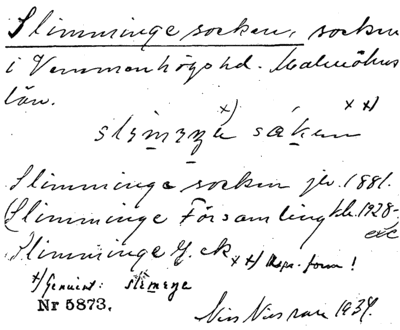 Slimminge socken, socken
i Vemmenhögs hd. Malmöhus
län.
x) x x)
slimiŋe såken
Slimminge socken jb. 1881.
Slimminge Församling kb. 1928-
etc
Slimminge G. ek.
x x) Repr. form!
x) Genuint: slimeŋe
Nr 5873.
1934.